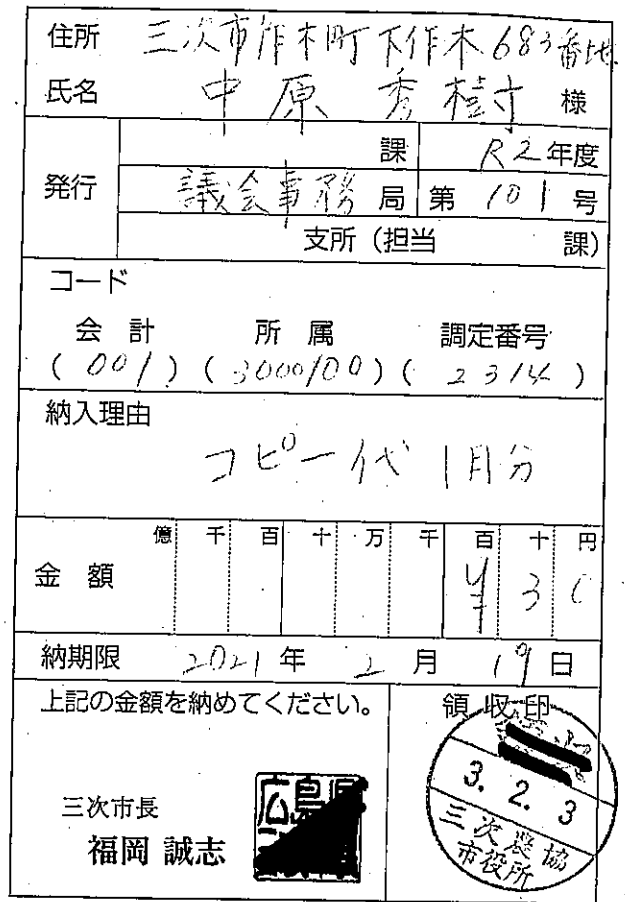 住所 三次市作木町下作木683番地
氏名 中原秀樹 様
発行
課 R2年度
議会事務局 第101号
支所(担当 課)
コード
会計 所属 調定番号
(001)(3000100)(2314)
納入理由
コピー代 1月分
億 千 百 十 万 千 百 十 円
金額 ¥30
納期限 2021年2月19日
上記の金額を納めてください。
領収印
3.2.3
三次農協
市役所
三次市長
福岡 誠志
広島県